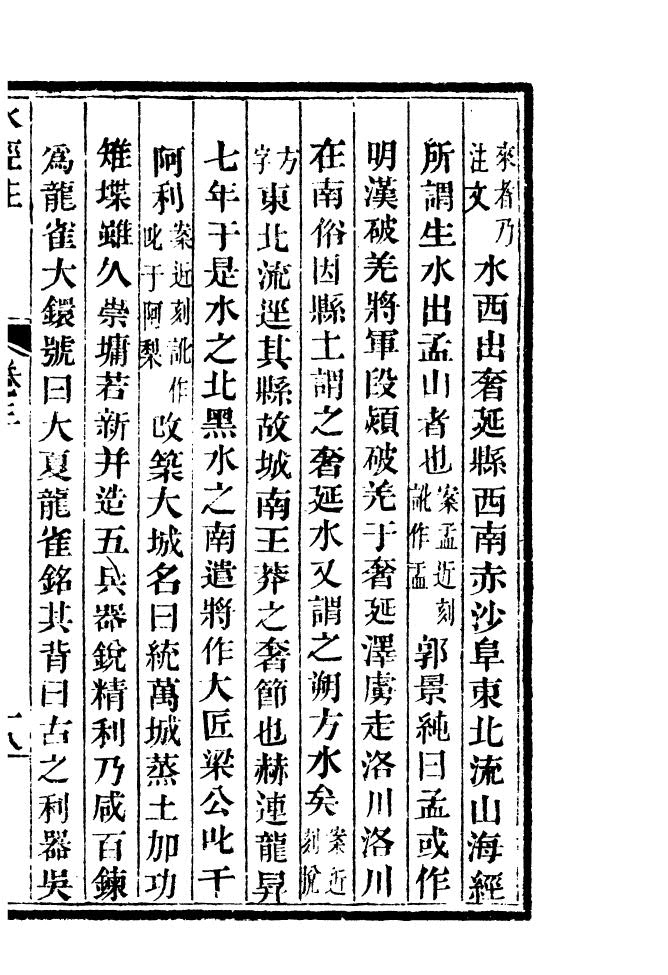 來者乃注文水西出奢延縣西南赤沙阜東北流山海經
所謂生水出孟山者也案孟近刻訛作盂郭景純曰孟或作
明漢破羌將軍段熲破羌于奢延澤虜走洛川洛川
在南俗因縣土謂之奢延水又謂之朔方水矣案近刻脫
方字東北流逕其縣故城南王莽之奢節也赫連龍昇
七年于是水之北黑水之南遣將作大匠梁公叱干
阿利案近刻訛作叱于阿梨改築大城名曰統萬城蒸土加功
雉堞雖久崇墉若新并造五兵器銳精利乃咸百鍊
為龍雀大鐶號曰大夏龍雀銘其背曰古之利器吳
水經注 卷三 十八